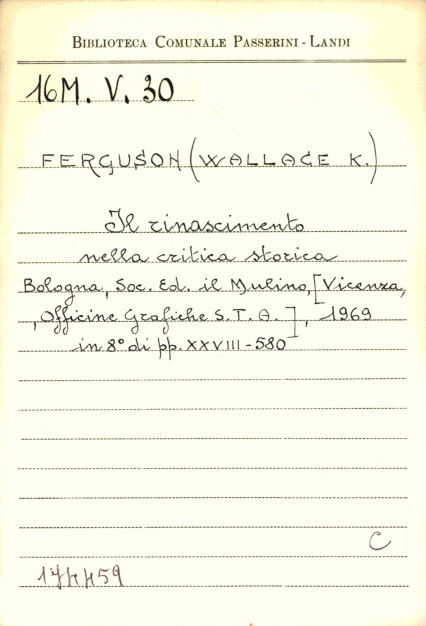 BIBLIOTECA COMUNALE PASSERINI - LANDI
16M. V. 30
FERGUSON (WALLACE K.)
Il rinascimento
nella critica storica
Bologna, Soc. Ed. il Mulino, [Vicenza,
, Officine Grafiche S. T. A.], 1969
in 8° di pp. XXVIII - 580
C
174459